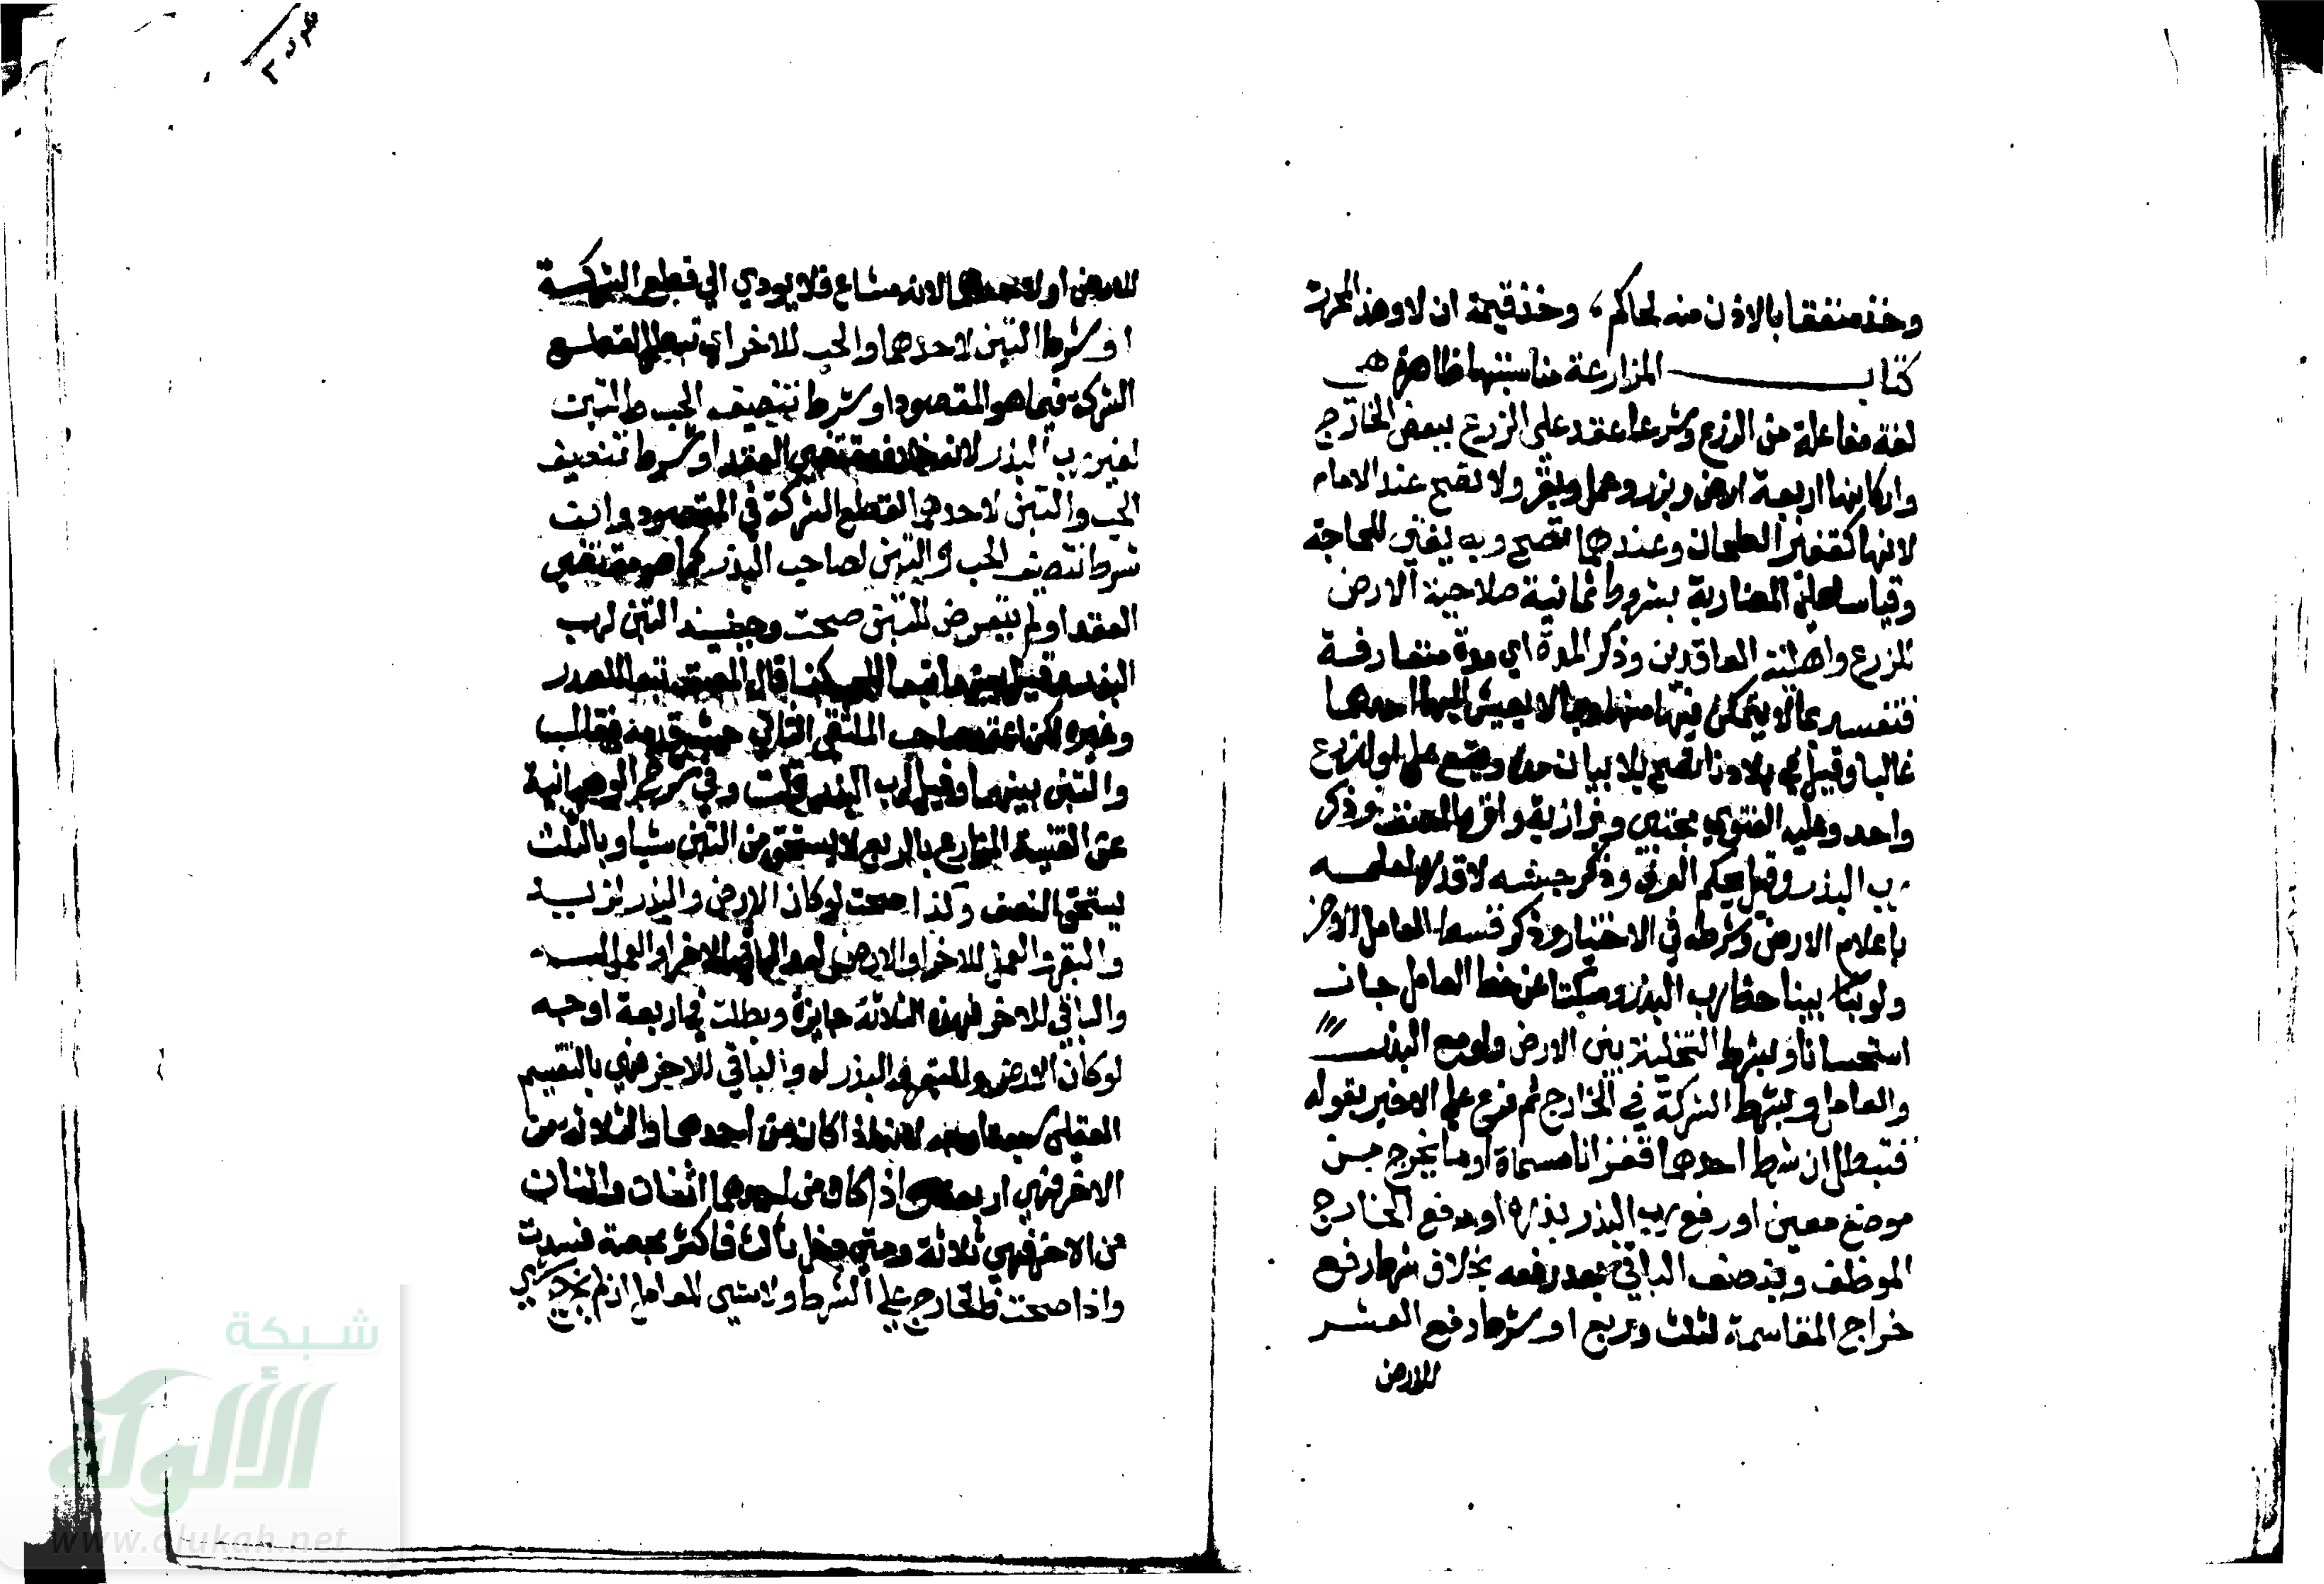 وخذ منفقا بالاذن منه لحاكم، وخذ قيمة ان لا وهذا المحرر
كتاب المزارعة مناسبتها ظاهرة هي
لغة مفاعلة من الزرع وشرعا عقد على الزرع ببعض الخارج
واركانها اربعة ارض وبزر وعمل وبقر ولا تصح عند الامام
لانها كقفيز الطحان وعندهما تصح وبه يفتى للحاجة
وقياسا على المضاربة بشروط ثمانية صلاحية الارض
للزرع واهلية العاقدين وذكر المدة اي مدة متعارفة
فتفسد بما لا يتمكن فيها منها وبما لا يعيش اليها احدهما
غالبا وقيل في بلادنا تصح بلا بيان مدة ويقع على اول زرع
واحد وعليه الفتوي مجتبي وبزازية واقره المصنف وذكر
رب البذر وقيل يحكم العرف وذكر جنسه لا قدره لعلمه
باعلام الارض وشرطه في الاختيار وذكر قسط العامل الاخر
ولو بينا حظ رب البذر وسكتا عن حظ العامل جاز
استحسانا وبشرط التخلية بين الارض ولو مع البذر
والعامل وبشرط الشركة في الخارج ثم فرع على الاخير بقوله
فتبطل ان شرط احدهما قفزانا مسماة او ما يخرج من
موضع معين او رفع رب البذر بذره او رفع الخارج
الموظف وتنصف الباقي بعد رفعه بخلاف شرط رفع
خراج المقاسمة لثلث وربع او شرط رفع العشر
للارض
للارض او لاحدهما لانه مشاع فلا يودي الي قطع الشركة
او شرط التبن لاحدهما والحب للاخر اي تبطل لقطع
الشركة فيما هو المقصود او شرط تنصيف الحب والتبن
لغير رب البذر لانه خلاف مقتضي العقد او شرط تنصيف
الحب والتبن لاحدهما لقطع الشركة في المقصود وان
شرط تنصيف الحب والتبن لصاحب البذر كما هو مقتضي
العقد او لم يتعرض للتبن صحت وحينئذ التبن لرب
البذر وقيل بينهما تبعا للحب كذا قال المصنف تبعا للصدر
وغيره لكن اعتمد صاحب الملتقي الثاني حيث قدمه فقال
والتبن بينهما وقيل لرب البذر قلت وفي شرح الوهبانية
عن القنية المزارع بالربع لا يستحق من التبن شيا وبالثلث
يستحق النصف وكذا صحت لو كان الارض والبذر لزيد
والبقر والعمل للاخر او الارض له والباقي للاخر او العمل له
والباقي للاخر فهذه الثلاثة جايزة وبطلت في اربعة اوجه
لو كان الارض والبقر لزيد او البذر له والباقي للاخر فهي بالتقسيم
العقلي سبعة اوجه لانه اذا كان من احدهما والثلاثة من
الاخر فهي اربعة واذا كان من احدهما اثنان واثنان
من الاخر فهي ثلاثة ومتي دخل ثالث فاكثر بحصة فسدت
واذا صحت فالخارج علي الشرط ولا شي للعامل ان لم يخرج شي
شبكة
الألوكة
www.alukah.net